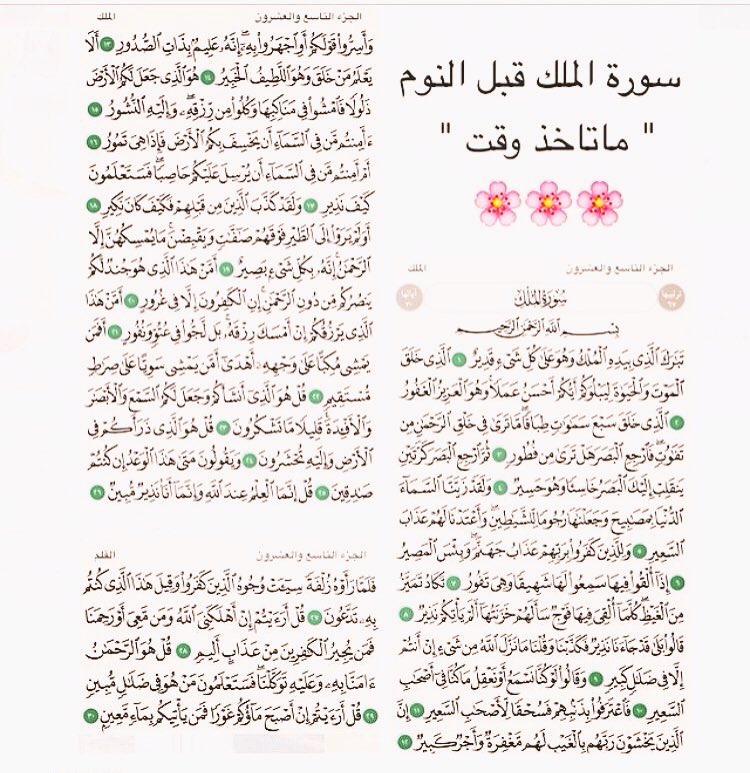 سورة الملك قبل النوم
" ماتاخذ وقت "
الجزء التاسع والعشرون الملك
ترتيبها ٦٧ سُورَةُ المُلْكِ آياتها ٣٠
بِسْمِ اللَّهِ الرَّحْمَٰنِ الرَّحِيمِ
تَبَٰرَكَ ٱلَّذِى بِيَدِهِ ٱلْمُلْكُ وَهُوَ عَلَىٰ كُلِّ شَىْءٍ قَدِيرٌ ١ ٱلَّذِى خَلَقَ
ٱلْمَوْتَ وَٱلْحَيَوٰةَ لِيَبْلُوَكُمْ أَيُّكُمْ أَحْسَنُ عَمَلًا وَهُوَ ٱلْعَزِيزُ ٱلْغَفُورُ
٢ ٱلَّذِى خَلَقَ سَبْعَ سَمَٰوَٰتٍ طِبَاقًا مَّا تَرَىٰ فِى خَلْقِ ٱلرَّحْمَٰنِ مِن
تَفَٰوُتٍ فَٱرْجِعِ ٱلْبَصَرَ هَلْ تَرَىٰ مِن فُطُورٍ ٣ ثُمَّ ٱرْجِعِ ٱلْبَصَرَ كَرَّتَيْنِ
يَنقَلِبْ إِلَيْكَ ٱلْبَصَرُ خَاسِئًا وَهُوَ حَسِيرٌ ٤ وَلَقَدْ زَيَّنَّا ٱلسَّمَآءَ
ٱلدُّنْيَا بِمَصَٰبِيحَ وَجَعَلْنَٰهَا رُجُومًا لِّلشَّيَٰطِينِ وَأَعْتَدْنَا لَهُمْ عَذَابَ
ٱلسَّعِيرِ ٥ وَلِلَّذِينَ كَفَرُوا۟ بِرَبِّهِمْ عَذَابُ جَهَنَّمَ وَبِئْسَ ٱلْمَصِيرُ
٦ إِذَآ أُلْقُوا۟ فِيهَا سَمِعُوا۟ لَهَا شَهِيقًا وَهِىَ تَفُورُ ٧ تَكَادُ تَمَيَّزُ
مِنَ ٱلْغَيْظِ كُلَّمَآ أُلْقِىَ فِيهَا فَوْجٌ سَأَلَهُمْ خَزَنَتُهَآ أَلَمْ يَأْتِكُمْ نَذِيرٌ ٨
قَالُوا۟ بَلَىٰ قَدْ جَآءَنَا نَذِيرٌ فَكَذَّبْنَا وَقُلْنَا مَا نَزَّلَ ٱللَّهُ مِن شَىْءٍ إِنْ أَنتُمْ
إِلَّا فِى ضَلَٰلٍ كَبِيرٍ ٩ وَقَالُوا۟ لَوْ كُنَّا نَسْمَعُ أَوْ نَعْقِلُ مَا كُنَّا فِىٓ أَصْحَٰبِ
ٱلسَّعِيرِ ١٠ فَٱعْتَرَفُوا۟ بِذَنۢبِهِمْ فَسُحْقًا لِّأَصْحَٰبِ ٱلسَّعِيرِ ١١ إِنَّ
ٱلَّذِينَ يَخْشَوْنَ رَبَّهُم بِٱلْغَيْبِ لَهُم مَّغْفِرَةٌ وَأَجْرٌ كَبِيرٌ ١٢
الجزء التاسع والعشرون الملك
وَأَسِرُّوا۟ قَوْلَكُمْ أَوِ ٱجْهَرُوا۟ بِهِۦٓ إِنَّهُۥ عَلِيمٌۢ بِذَاتِ ٱلصُّدُورِ ١٣ أَلَا
يَعْلَمُ مَنْ خَلَقَ وَهُوَ ٱللَّطِيفُ ٱلْخَبِيرُ ١٤ هُوَ ٱلَّذِى جَعَلَ لَكُمُ ٱلْأَرْضَ
ذَلُولًا فَٱمْشُوا۟ فِى مَنَاكِبِهَا وَكُلُوا۟ مِن رِّزْقِهِۦ وَإِلَيْهِ ٱلنُّشُورُ ١٥
ءَأَمِنتُم مَّن فِى ٱلسَّمَآءِ أَن يَخْسِفَ بِكُمُ ٱلْأَرْضَ فَإِذَا هِىَ تَمُورُ ١٦
أَمْ أَمِنتُم مَّن فِى ٱلسَّمَآءِ أَن يُرْسِلَ عَلَيْكُمْ حَاصِبًا فَسَتَعْلَمُونَ
كَيْفَ نَذِيرِ ١٧ وَلَقَدْ كَذَّبَ ٱلَّذِينَ مِن قَبْلِهِمْ فَكَيْفَ كَانَ نَكِيرِ ١٨
أَوَلَمْ يَرَوْا۟ إِلَى ٱلطَّيْرِ فَوْقَهُمْ صَٰٓفَّٰتٍ وَيَقْبِضْنَ مَا يُمْسِكُهُنَّ إِلَّا
ٱلرَّحْمَٰنُ إِنَّهُۥ بِكُلِّ شَىْءٍۭ بَصِيرٌ ١٩ أَمَّنْ هَٰذَا ٱلَّذِى هُوَ جُندٌ لَّكُمْ
يَنصُرُكُم مِّن دُونِ ٱلرَّحْمَٰنِ إِنِ ٱلْكَٰفِرُونَ إِلَّا فِى غُرُورٍ ٢٠ أَمَّنْ هَٰذَا
ٱلَّذِى يَرْزُقُكُمْ إِنْ أَمْسَكَ رِزْقَهُۥ بَل لَّجُّوا۟ فِى عُتُوٍّ وَنُفُورٍ ٢١ أَفَمَن
يَمْشِى مُكِبًّا عَلَىٰ وَجْهِهِۦٓ أَهْدَىٰٓ أَمَّن يَمْشِى سَوِيًّا عَلَىٰ صِرَٰطٍ
مُّسْتَقِيمٍ ٢٢ قُلْ هُوَ ٱلَّذِىٓ أَنشَأَكُمْ وَجَعَلَ لَكُمُ ٱلسَّمْعَ وَٱلْأَبْصَٰرَ
وَٱلْأَفْـِٔدَةَ قَلِيلًا مَّا تَشْكُرُونَ ٢٣ قُلْ هُوَ ٱلَّذِى ذَرَأَكُمْ فِى
ٱلْأَرْضِ وَإِلَيْهِ تُحْشَرُونَ ٢٤ وَيَقُولُونَ مَتَىٰ هَٰذَا ٱلْوَعْدُ إِن كُنتُمْ
صَٰدِقِينَ ٢٥ قُلْ إِنَّمَا ٱلْعِلْمُ عِندَ ٱللَّهِ وَإِنَّمَآ أَنَا۠ نَذِيرٌ مُّبِينٌ ٢٦
الجزء التاسع والعشرون القلم
فَلَمَّا رَأَوْهُ زُلْفَةً سِيٓـَٔتْ وُجُوهُ ٱلَّذِينَ كَفَرُوا۟ وَقِيلَ هَٰذَا ٱلَّذِى كُنتُم
بِهِۦ تَدَّعُونَ ٢٧ قُلْ أَرَءَيْتُمْ إِنْ أَهْلَكَنِىَ ٱللَّهُ وَمَن مَّعِىَ أَوْ رَحِمَنَا
فَمَن يُجِيرُ ٱلْكَٰفِرِينَ مِنْ عَذَابٍ أَلِيمٍ ٢٨ قُلْ هُوَ ٱلرَّحْمَٰنُ
ءَامَنَّا بِهِۦ وَعَلَيْهِ تَوَكَّلْنَا فَسَتَعْلَمُونَ مَنْ هُوَ فِى ضَلَٰلٍ مُّبِينٍ
٢٩ قُلْ أَرَءَيْتُمْ إِنْ أَصْبَحَ مَآؤُكُمْ غَوْرًا فَمَن يَأْتِيكُم بِمَآءٍ مَّعِينٍۭ ٣٠